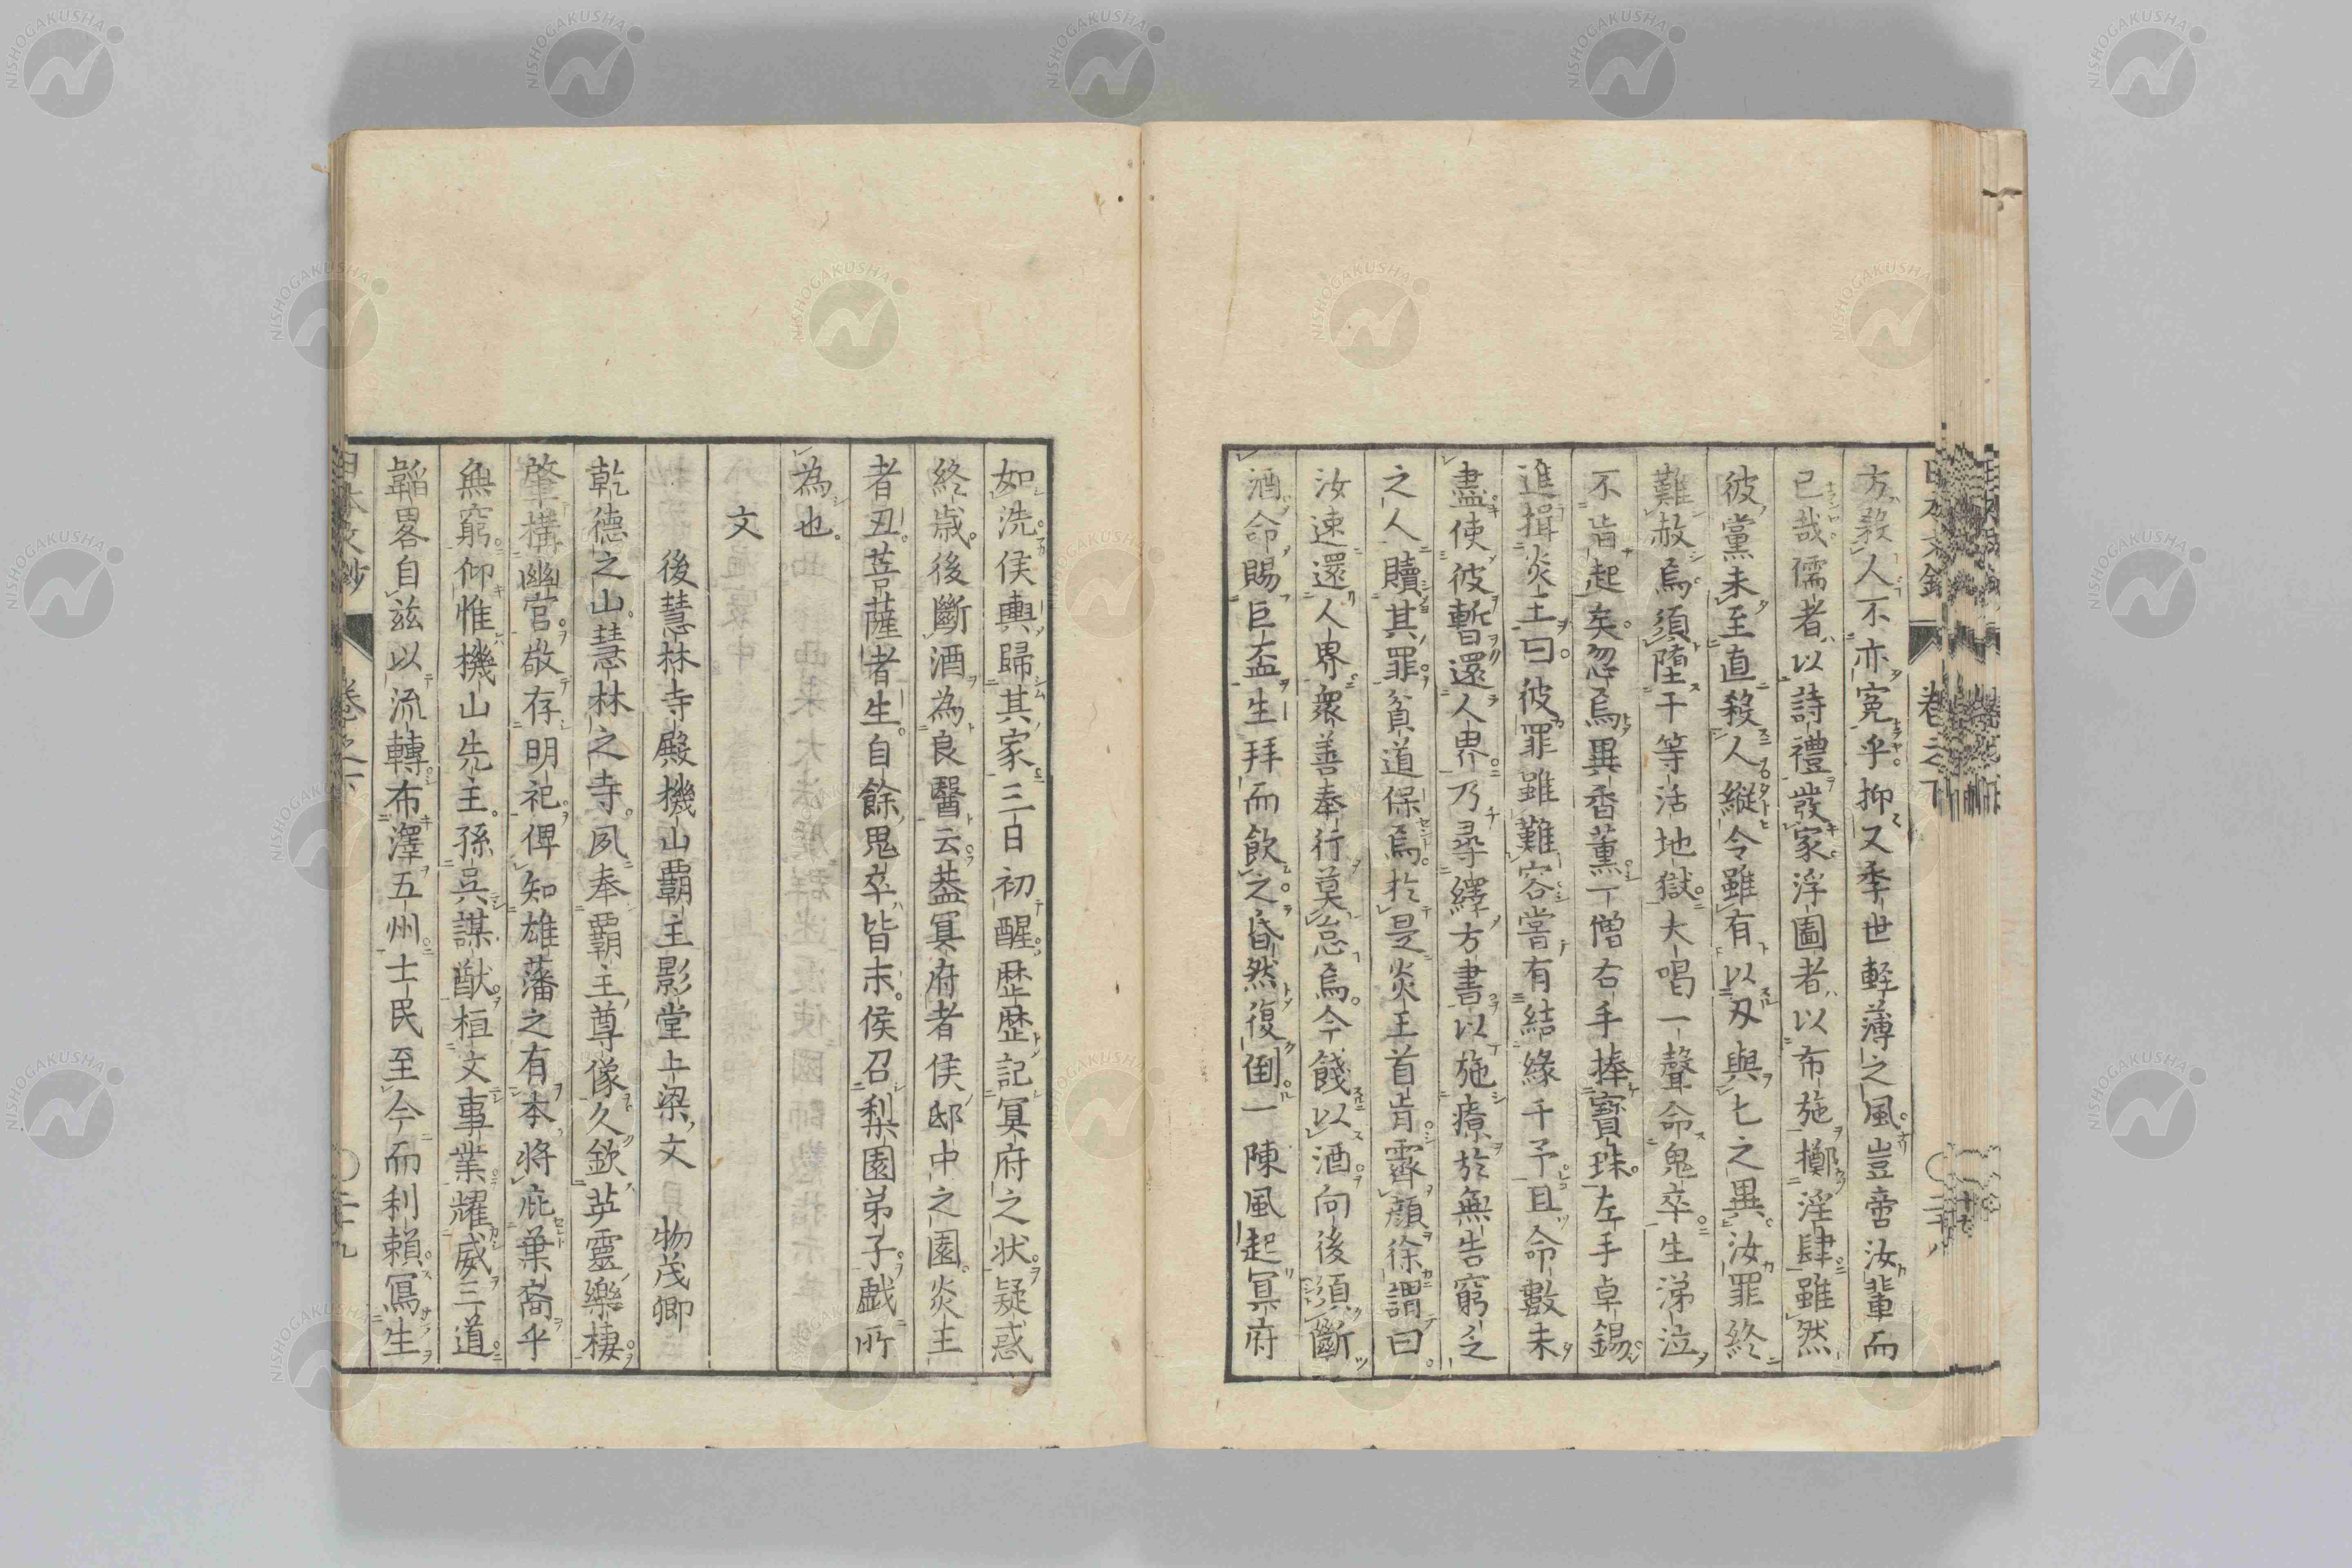 方殺人不亦冤乎抑又季世輕薄之風豈啻汝輩而
已哉儒者以詩禮發冢浮圖者以布施擲淫肆雖然
彼黨未至直殺人縱令雖有以刃與匕之異汝罪終
難赦焉須墮于等活地獄大喝一聲命鬼卒生涕泣
不肯起矣忽焉異香薰一僧右手捧寶珠左手卓錫
進揖炎主曰彼罪雖難容嘗有結緣于予且命數未
盡使彼暫還人界乃尋繹方書以施療於無告窮乏
之人贖其罪貧道保焉於是炎王首肯霽顏徐謂曰
汝速還人界衆善奉行莫怠焉今餞以酒向後須斷
酒命賜巨盃生拜而飲之昏然復倒一陳風起冥府
日本文鈔 卷之下 二十八
如洗侯輿歸其家三日初醒歷歷記冥府之狀疑惑
終歲後斷酒為良醫云葢冥府者侯邸中之園炎主
者丑菩薩者生自餘鬼卒皆末侯召梨園弟子戲所
為也
文
後慧林寺殿機山覇主影堂上梁文 物茂卿
乾德之山慧林之寺夙奉覇主尊像久欽英靈樂棲
肇構幽宮敬存明祀俾知雄藩之有本將庇葉裔乎
無窮仰惟機山先主孫吳謀猷桓文事業耀威三道
韜畧自茲以流轉布澤五州士民至今而利賴寫生
日本文鈔 卷之下 二十九
NISHOGAKUSHA